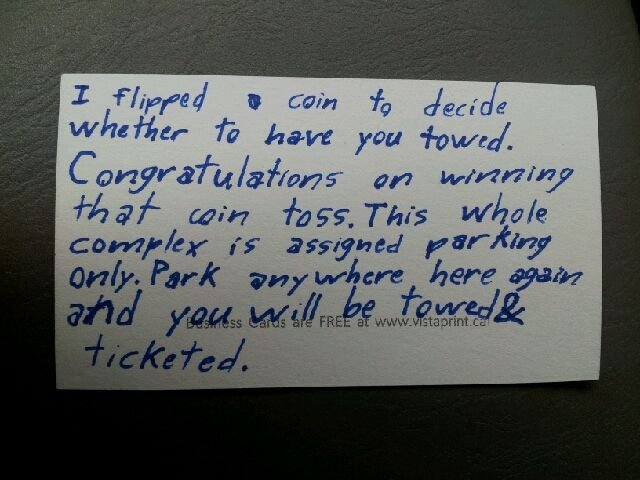 I flipped a coin to decide
whether to have you towed.
Congratulations on winning
that coin toss. This whole
complex is assigned parking
only. Park anywhere here again
and you will be towed &
Business Cards are FREE at www.vistaprint.ca
ticketed.